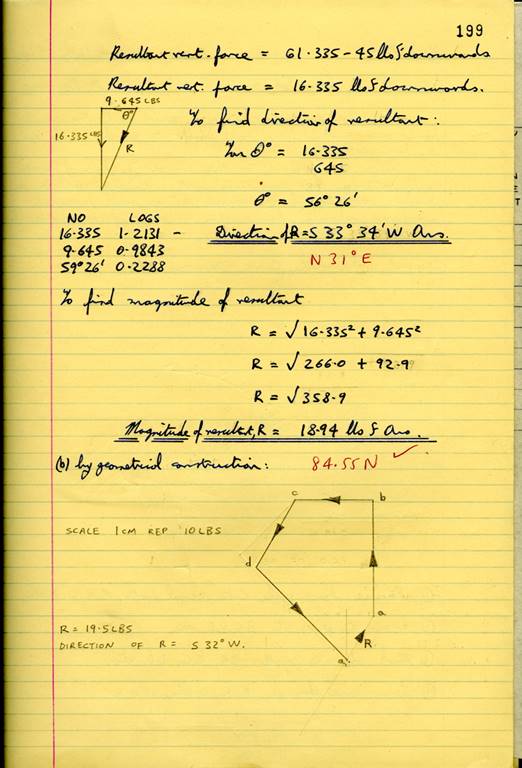 199
Resultant vert. force = 61.335 - 45 lbsf downwards
Resultant vert. force = 16.335 lbsf downwards.
9.645 LBS
θ°
16.335 LBS
R
To find direction of resultant:
Tan θ° = 16.335
645
θ° = 56° 26'
NO LOGS
16.335 1.2131 -
9.645 0.9843
59° 26' 0.2288
Direction of R = S 33° 34' W Ans.
N 31° E
To find magnitude of resultant
R = √ 16.335² + 9.645²
R = √ 266.0 + 92.9
R = √ 358.9
Magnitude of resultant, R = 18.94 lbsf Ans.
(b) by geometrical construction:
84.55 N ✓
c
b
SCALE 1CM REP 10 LBS
d
a
R
a'
R = 19.5 LBS
DIRECTION OF R = S 32° W.